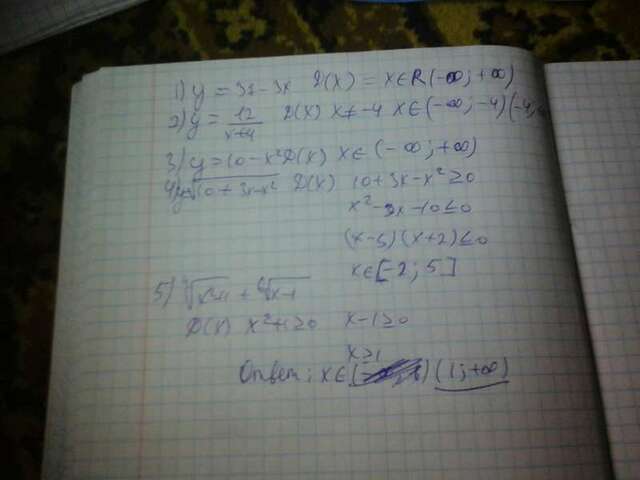 1) y = 37 - 3x D(x) = x∈R (-∞; +∞)
2) y = 12/(x+4) D(x) x ≠ -4 x∈(-∞; -4)(-4;
3) y = 10 - x² D(x) x∈(-∞; +∞)
4) y = √(10 + 3x - x²) D(x) 10 + 3x - x² ≥ 0
x² - 3x - 10 ≤ 0
(x - 5)(x + 2) ≤ 0
x∈[-2; 5]
5) √(x²+1) + ⁶√(x-1)
D(x) x² + 1 ≥ 0 x - 1 ≥ 0
x ≥ 1
Ответ: x∈ (1; +∞)